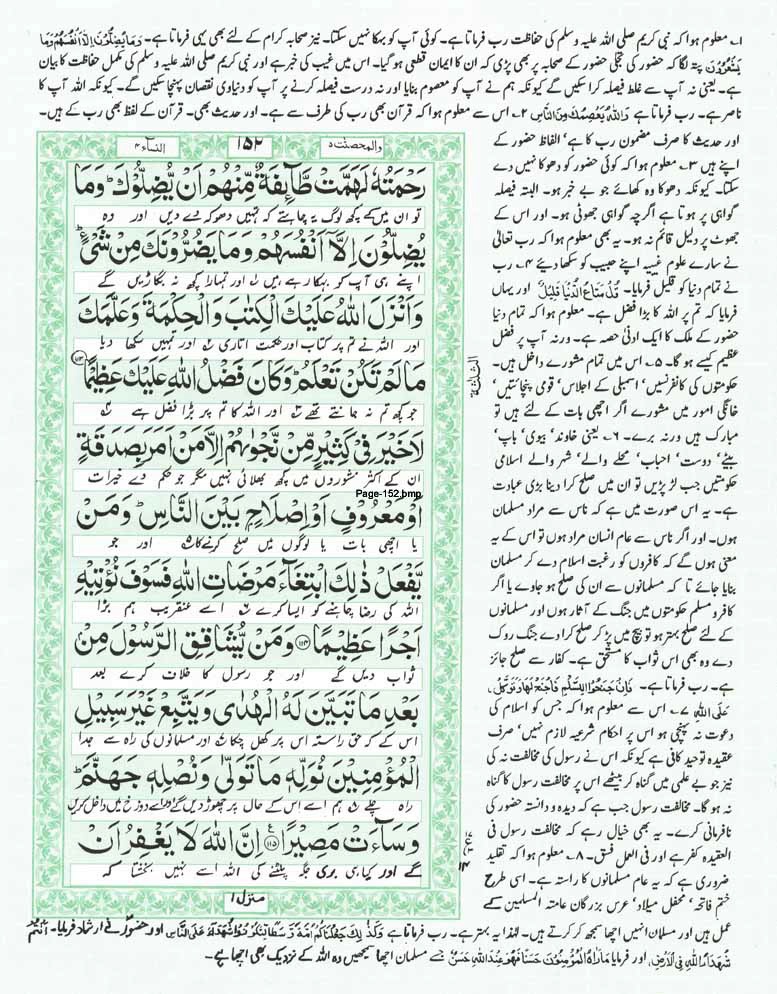 ۱۔ معلوم ہوا کہ نبی کریم صلی اللہ علیہ وسلم کی حفاظت رب فرماتا ہے۔ کوئی آپ کو بہکا نہیں سکتا۔ نیز صحابہ کرام کے لئے بھی یہی فرماتا ہے۔ وَمَا یُضِلُّوْنَ اِلَّا اَنْفُسَهُمْ وَمَا
یَشْعُرُوْنَ پتہ لگا کہ حضور کی تجلی حضور کے صحابہ پر بھی پڑی کہ ان کا ایمان قطعی ہو گیا۔ اس میں غیب کی خبر ہے اور نبی کریم صلی اللہ علیہ وسلم کی مکمل حفاظت کا بیان
ہے۔ یعنی نہ آپ سے غلط فیصلہ کرا سکیں گے کیونکہ ہم نے آپ کو معصوم بنایا اور نہ درست فیصلہ کرنے پر آپ کو دنیاوی نقصان پہنچا سکیں گے۔ کیونکہ اللہ آپ کا
ناصر ہے۔ رب فرماتا ہے وَاللّٰهُ یَعْصِمُكَ مِنَ النَّاسِ ۲۔ اس سے معلوم ہوا کہ قرآن بھی رب کی طرف سے ہے۔ اور حدیث بھی۔ قرآن کے لفظ بھی رب کے ہیں۔
اور حدیث کا صرف مضمون رب کا ہے، الفاظ حضور کے
اپنے ہیں ۳۔ معلوم ہوا کہ کوئی حضور کو دھوکا نہیں دے
سکتا۔ کیونکہ دھوکا وہ کھائے جو بے خبر ہو۔ البتہ فیصلہ
گواہی پر ہوتا ہے اگرچہ گواہی جھوٹی ہو۔ اور اس کے
جھوٹ پر دلیل قائم نہ ہو۔ یہ بھی معلوم ہوا کہ رب تعالیٰ
نے سارے علوم غیبیہ اپنے حبیب کو سکھا دیئے ۴۔ رب
نے تمام دنیا کو قلیل فرمایا۔ قُلْ مَتَاعُ الدُّنْیَا قَلِیْلٌ اور یہاں
فرمایا کہ تم پر اللہ کا بڑا فضل ہے۔ معلوم ہوا کہ تمام دنیا
حضور کے ملک کا ایک ادنیٰ حصہ ہے۔ ورنہ آپ پر فضل
عظیم کیسے ہو گا۔ ۵۔ اس میں تمام مشورے داخل ہیں۔
حکومتوں کی کانفرنسیں، اسمبلی کے اجلاس، قومی پنچائتیں،
خانگی امور میں مشورے اگر اچھی بات کے لئے ہیں تو
مبارک ہیں ورنہ برے۔ ۶۔ یعنی خاوند، بیوی، باپ،
بیٹے، دوست، احباب، محلے والے، شہر والے اسلامی
حکومتیں جب لڑ پڑیں تو ان میں صلح کرا دینا بڑی عبادت
ہے۔ یہ اس صورت میں ہے کہ ناس سے مراد مسلمان
ہوں۔ اور اگر ناس سے عام انسان مراد ہوں تو اس کے یہ
معنی ہوں گے کہ کافروں کو رغبت اسلام دے کر مسلمان
بنایا جائے تا کہ مسلمانوں سے ان کی صلح ہو جاوے یا اگر
کافر و مسلم حکومتوں میں جنگ کے آثار ہوں اور مسلمانوں
کے لئے صلح بہتر ہو تو بیچ میں پڑ کر صلح کرا دے جنگ روک
دے وہ بھی اس ثواب کا مستحق ہے۔ کفار سے صلح جائز
ہے۔ رب فرماتا ہے۔ فَاِنْ جَنَحُوْا لِلسَّلْمِ فَاجْنَحْ لَهَا وَتَوَكَّلْ
عَلَی اللّٰهِ ۷۔ اس سے معلوم ہوا کہ جس کو اسلام کی
دعوت نہ پہنچی ہو اس پر احکام شرعیہ لازم نہیں، صرف
عقیدہ توحید کافی ہے کیونکہ اس نے رسول کی مخالفت نہ کی
نیز جو بے علمی میں گناہ کر بیٹھے اس پر مخالفت رسول کا گناہ
نہ ہو گا۔ مخالفت رسول جب ہے کہ دیدہ و دانستہ حضور کی
نافرمانی کرے۔ یہ بھی خیال رہے کہ مخالفت رسول فی
العقیدہ کفر ہے اور فی العمل فسق۔ ۸۔ معلوم ہوا کہ تقلید
ضروری ہے کہ یہ عام مسلمانوں کا راستہ ہے۔ اسی طرح
ختم فاتحہ، محفل میلاد، عرس بزرگان عامۃ المسلمین کے
والمحصنت ۵
۱۵۲
النساء ۴
رَحْمَتُهٗ لَهَمَّتْ طَّآئِفَةٌ مِّنْهُمْ اَنْ یُّضِلُّوْكَ وَمَا
تو ان میں کے کچھ لوگ یہ چاہتے کہ تمہیں دھوکہ دے دیں اور وہ
یُضِلُّوْنَ اِلَّاۤ اَنْفُسَهُمْ وَمَا یَضُرُّوْنَكَ مِنْ شَیْءٍ
اپنے ہی آپ کو بہکا رہے ہیں اور تمہارا کچھ نہ بگاڑیں گے
وَاَنْزَلَ اللّٰهُ عَلَیْكَ الْكِتٰبَ وَالْحِكْمَةَ وَعَلَّمَكَ
اور اللہ نے تم پر کتاب اور حکمت اتاری اور تمہیں سکھا دیا
مَا لَمْ تَكُنْ تَعْلَمُ وَكَانَ فَضْلُ اللّٰهِ عَلَیْكَ عَظِیْمًا ۱۱۳
جو کچھ تم نہ جانتے تھے اور اللہ کا تم پر بڑا فضل ہے
لَاخَیْرَ فِیْ كَثِیْرٍ مِّنْ نَّجْوٰىهُمْ اِلَّا مَنْ اَمَرَ بِصَدَقَةٍ
ان کے اکثر مشوروں میں کچھ بھلائی نہیں مگر جو حکم دے خیرات
Page-152.bmp
اَوْ مَعْرُوْفٍ اَوْ اِصْلَاحٍۭ بَیْنَ النَّاسِ وَمَنْ
یا اچھی بات یا لوگوں میں صلح کرنے کا اور جو
یَّفْعَلْ ذٰلِكَ ابْتِغَآءَ مَرْضَاتِ اللّٰهِ فَسَوْفَ نُؤْتِیْهِ
اللہ کی رضا چاہنے کو ایسا کرے اسے عنقریب ہم بڑا
اَجْرًا عَظِیْمًا ۱۱۴ وَمَنْ یُّشَاقِقِ الرَّسُوْلَ مِنْۢ
ثواب دیں گے اور جو رسول کا خلاف کرے بعد
بَعْدِ مَا تَبَیَّنَ لَهُ الْهُدٰى وَیَتَّبِعْ غَیْرَ سَبِیْلِ
اس کے کہ حق راستہ اس پر کھل چکا اور مسلمانوں کی راہ سے جدا
الْمُؤْمِنِیْنَ نُوَلِّهٖ مَا تَوَلّٰى وَنُصْلِهٖ جَهَنَّمَ
راہ چلے ہم اسے اس کے حال پر چھوڑ دیں گے اور اسے دوزخ میں داخل کریں
وَسَآءَتْ مَصِیْرًا ۱۱۵ اِنَّ اللّٰهَ لَا یَغْفِرُ اَنْ
گے اور کیا ہی بری جگہ پلٹنے کی اللہ اسے نہیں بخشتا کہ
منزل ۱
عمل ہیں اور مسلمان انہیں اچھا سمجھ کر کرتے ہیں۔ لہٰذا یہ بہتر ہے۔ رب فرماتا ہے وَكَذٰلِكَ جَعَلْنٰكُمْ اُمَّةً وَّسَطًا لِّتَكُوْنُوْا شُهَدَآءَ عَلَی النَّاسِ اور حضورؐ نے ارشاد فرمایا۔ اَنْتُمْ
شُهَدَآءُ اللّٰهِ فِی الْاَرْضِ، اور فرمایا مَا رَاٰهُ الْمُؤْمِنُوْنَ حَسَنًا فَهُوَ عِنْدَ اللّٰهِ حَسَنٌ جسے مسلمان اچھا سمجھیں وہ اللہ کے نزدیک بھی اچھا ہے۔